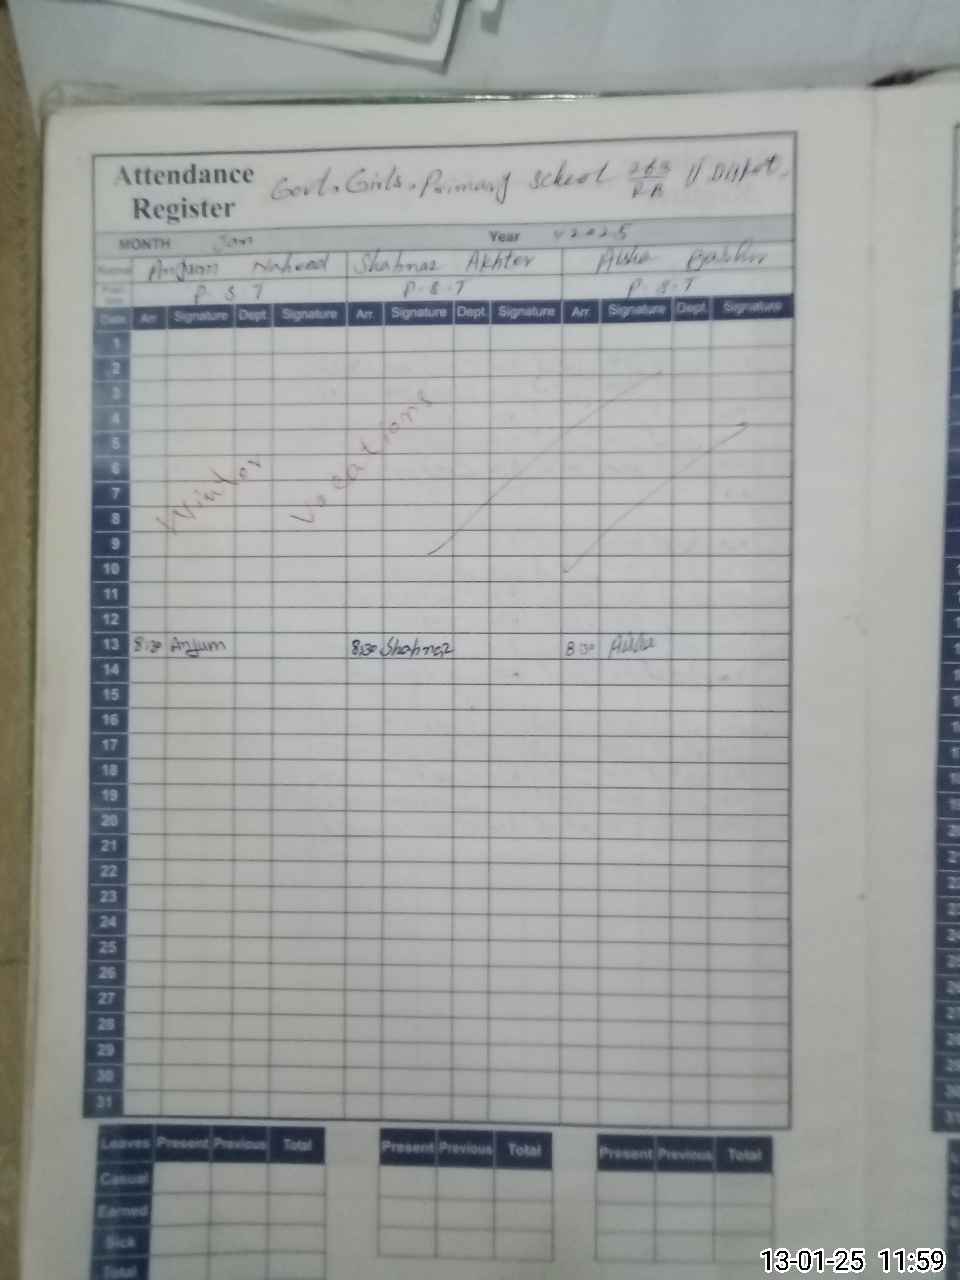 Attendance Register
Govt. Girls. Primary School 263/RB
MONTH Jan Year 2025
Name Anjum Naheed Shahnaz Akhter Aisha Bashir
P.S.T P.S.T P.S.T
Date Arr. Signature Dept. Signature Arr. Signature Dept. Signature Arr. Signature Dept. Signature
1
2
3
4
5
6
7
8
9
Winter Vocations
10
11
12
13 8:30 Anjum 8:30 Shahnaz 8:30 Aisha
14
15
16
17
18
19
20
21
22
23
24
25
26
27
28
29
30
31
Leaves Present Previous Total Present Previous Total Present Previous Total
Casual
Earned
Sick
Total
13-01-25 11:59